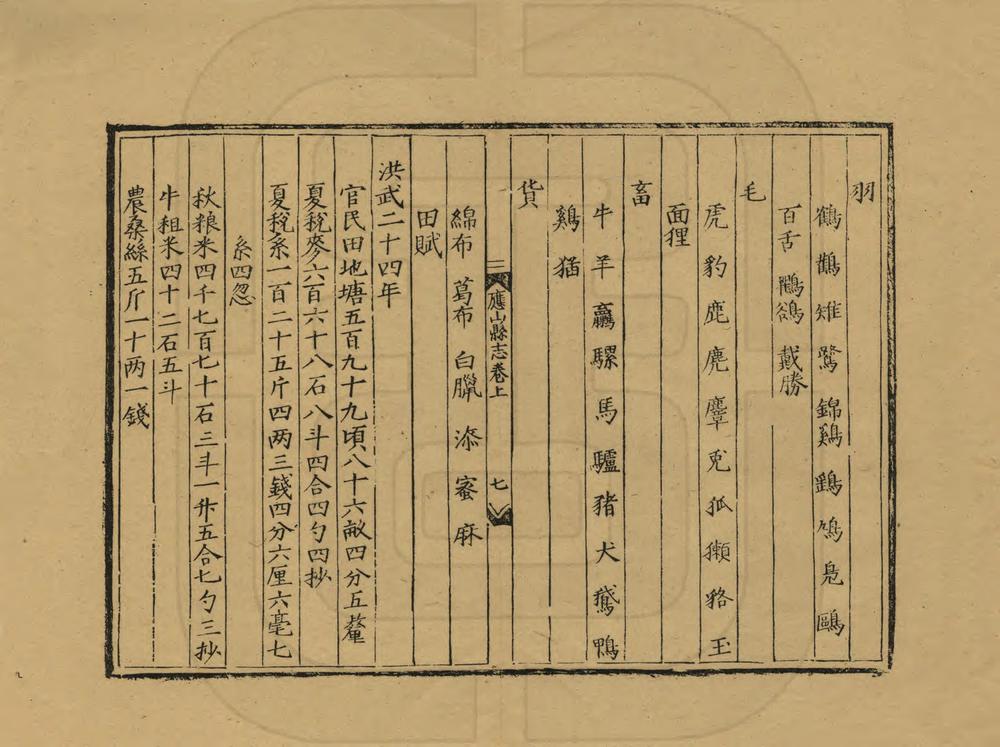 羽
鶴 鵲 雉 鷺 錦鷄 鷂 鳩 鳧 鷗
百舌 鸜鵒 戴勝
毛
虎 豹 鹿 麂 麞 兎 狐 獺 狢 玉
面狸
畜
牛 羊 驘騾 馬 驢 猪 犬 鵝 鴨
鷄 猫
貨
應山縣志卷上 七
綿布 葛布 白臘 漆 蜜 麻
田賦
洪武二十四年
官民田地塘五百九十九頃八十六畝四分五釐
夏稅麥六百六十八石八斗四合四勺四抄
夏稅糸一百二十五斤四两三錢四分六厘六毫七
糸四忽
秋粮米四千七百七十石三斗一升五合七勺三抄
牛租米四十二石五斗
農桑絲五斤一十两一錢